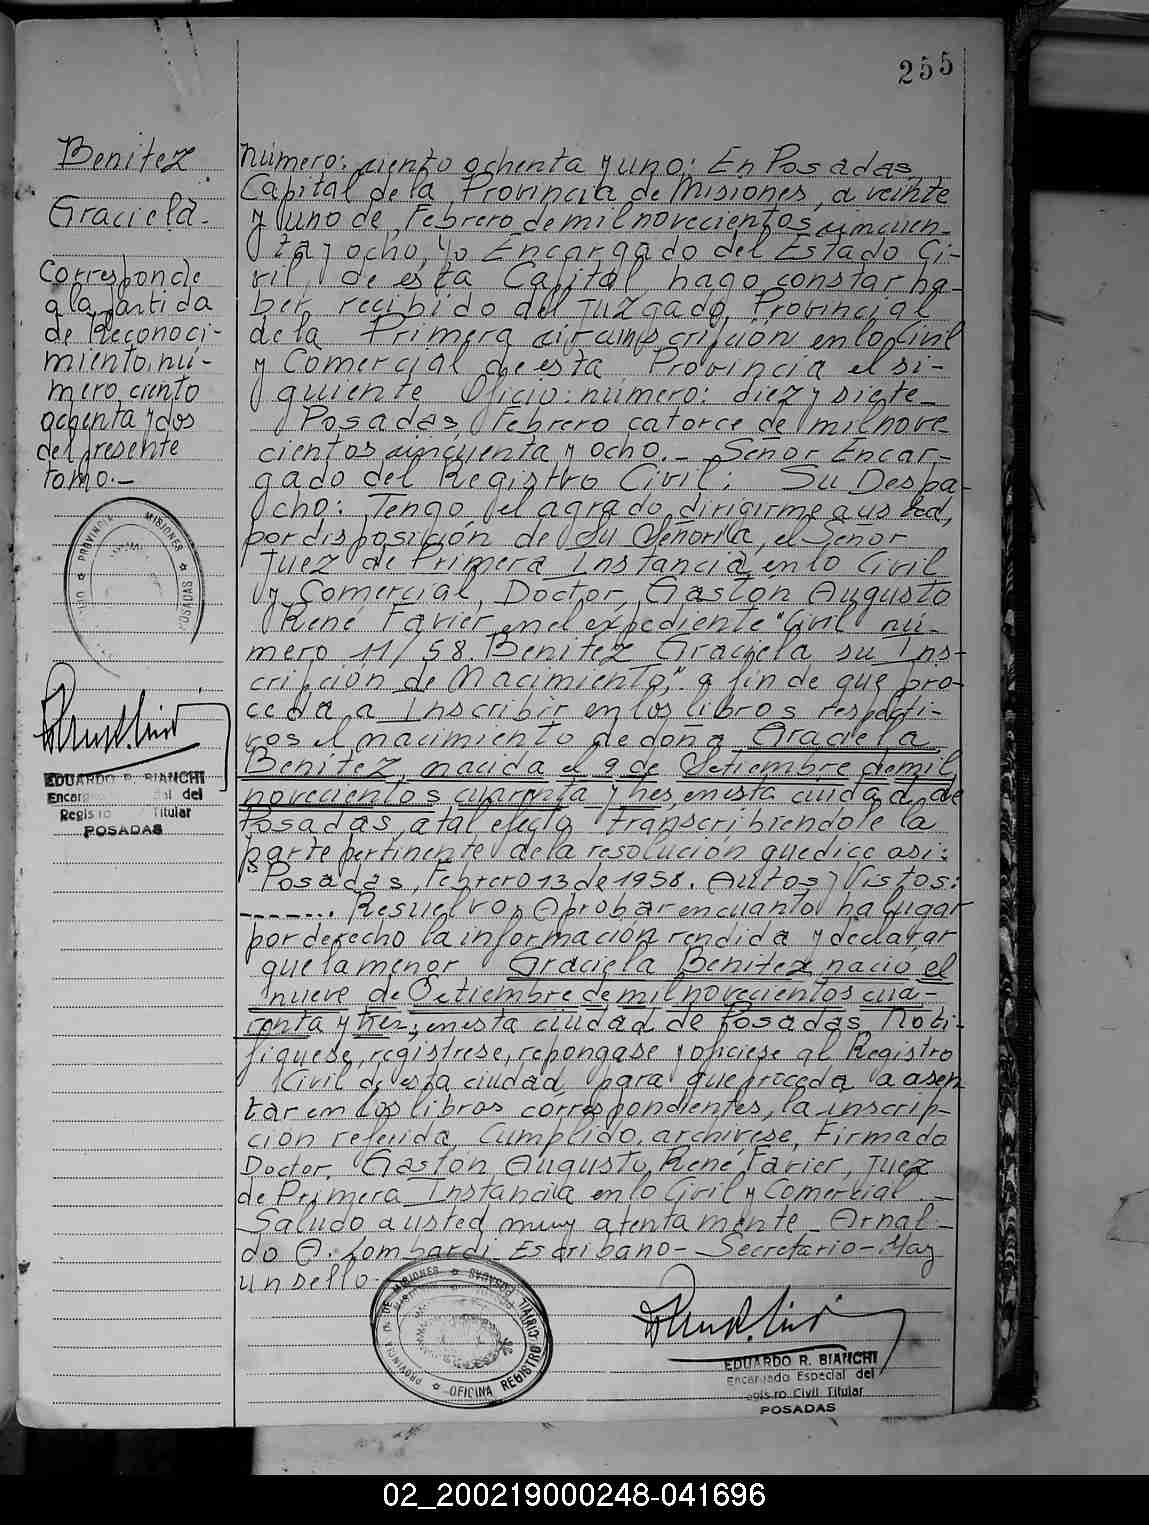 255
Benitez
Graciela.
Corresponde
a la partida
de Reconoci-
miento nú-
mero ciento
ochenta y dos
del presente
tomo.-
PROVINCIA MISIONES POSADAS
EDUARDO R. BIANCHI
Encarg al del
Regis ro Titular
POSADAS
Número: ciento ochenta y uno: En Posadas,
Capital de la Provincia de Misiones, a veinte
y uno de Febrero de mil novecientos cincuen-
ta y ocho, Yo Encargado del Estado Ci-
vil, de esta Capital, hago constar ha-
ber recibido del Juzgado Provincial
de la Primera circunscripción en lo Civil
y Comercial de esta Provincia el si-
guiente Oficio: número: diez y siete_
Posadas, Febrero catorce de mil nove-
cientos cincuenta y ocho.- Señor Encar-
gado del Registro Civil: Su Despa-
cho: Tengo el agrado dirigirme a usted,
por disposición de Su Señoria, el Señor
Juez de Primera Instancia en lo Civil
y Comercial, Doctor Gastón Augusto
René Favier, en el expediente "Civil nú-
mero 11/58. Benitez Graciela su Ins-
cripción de Nacimiento," a fin de que pro-
ceda a Inscribir en los libros respecti-
vos el nacimiento de doña Graciela
Benitez, nacida el 9 de Setiembre de mil
novecientos cuarenta y tres, en esta ciudad de
Posadas, a tal efecto transcribiendole la
parte pertinente de la resolución que dice asi:
"Posadas, Febrero 13 de 1958. Autos y Vistos:
-------. Resuelvo: Aprobar en cuanto ha lugar
por derecho la información rendida y declarar
que la menor Graciela Benitez nació el
nueve de Setiembre de mil novecientos cua-
renta y tres, en esta ciudad de Posadas. Noti-
fiquese, registrese, repongase y oficiese al Registro
Civil de esta ciudad para que proceda a asen
tar en los libros correspondientes, la inscrip-
ción referida. Cumplido, archivese, Firmado
Doctor. Gastón Augusto René Favier, Juez
de Primera Instancia en lo Civil y Comercial._
Saludo a usted muy atentamente_ Arnal-
do A. Lombardi Escribano- Secretario- Hay
un sello.
PROVINCIA DE MISIONES
OFICINA REGISTRO CIVIL TITULAR POSADAS
EDUARDO R. BIANCHI
Encargado Especial del
egis ro Civil Titular
POSADAS
02_200219000248-041696